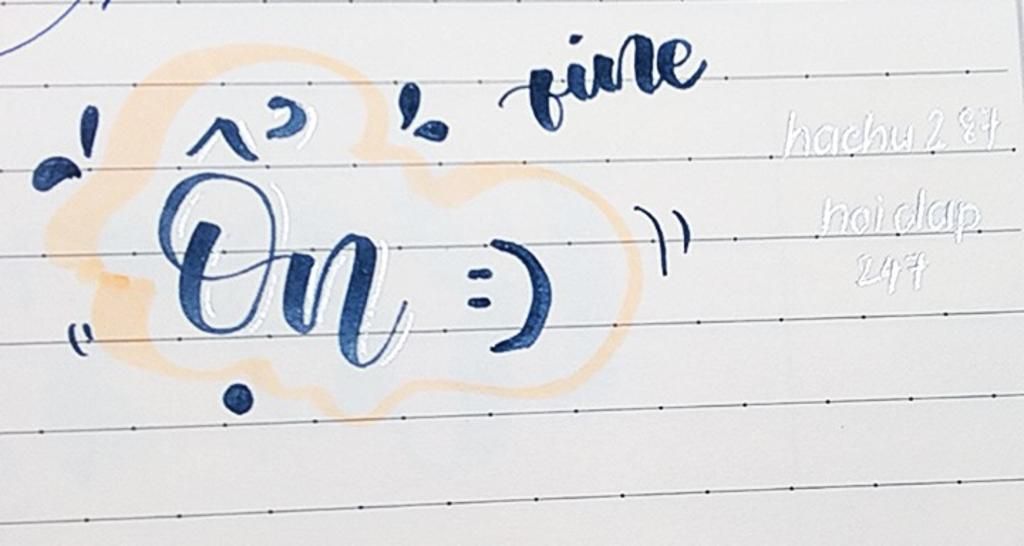 fine
Ổn :)
hachu287
hoidap
247